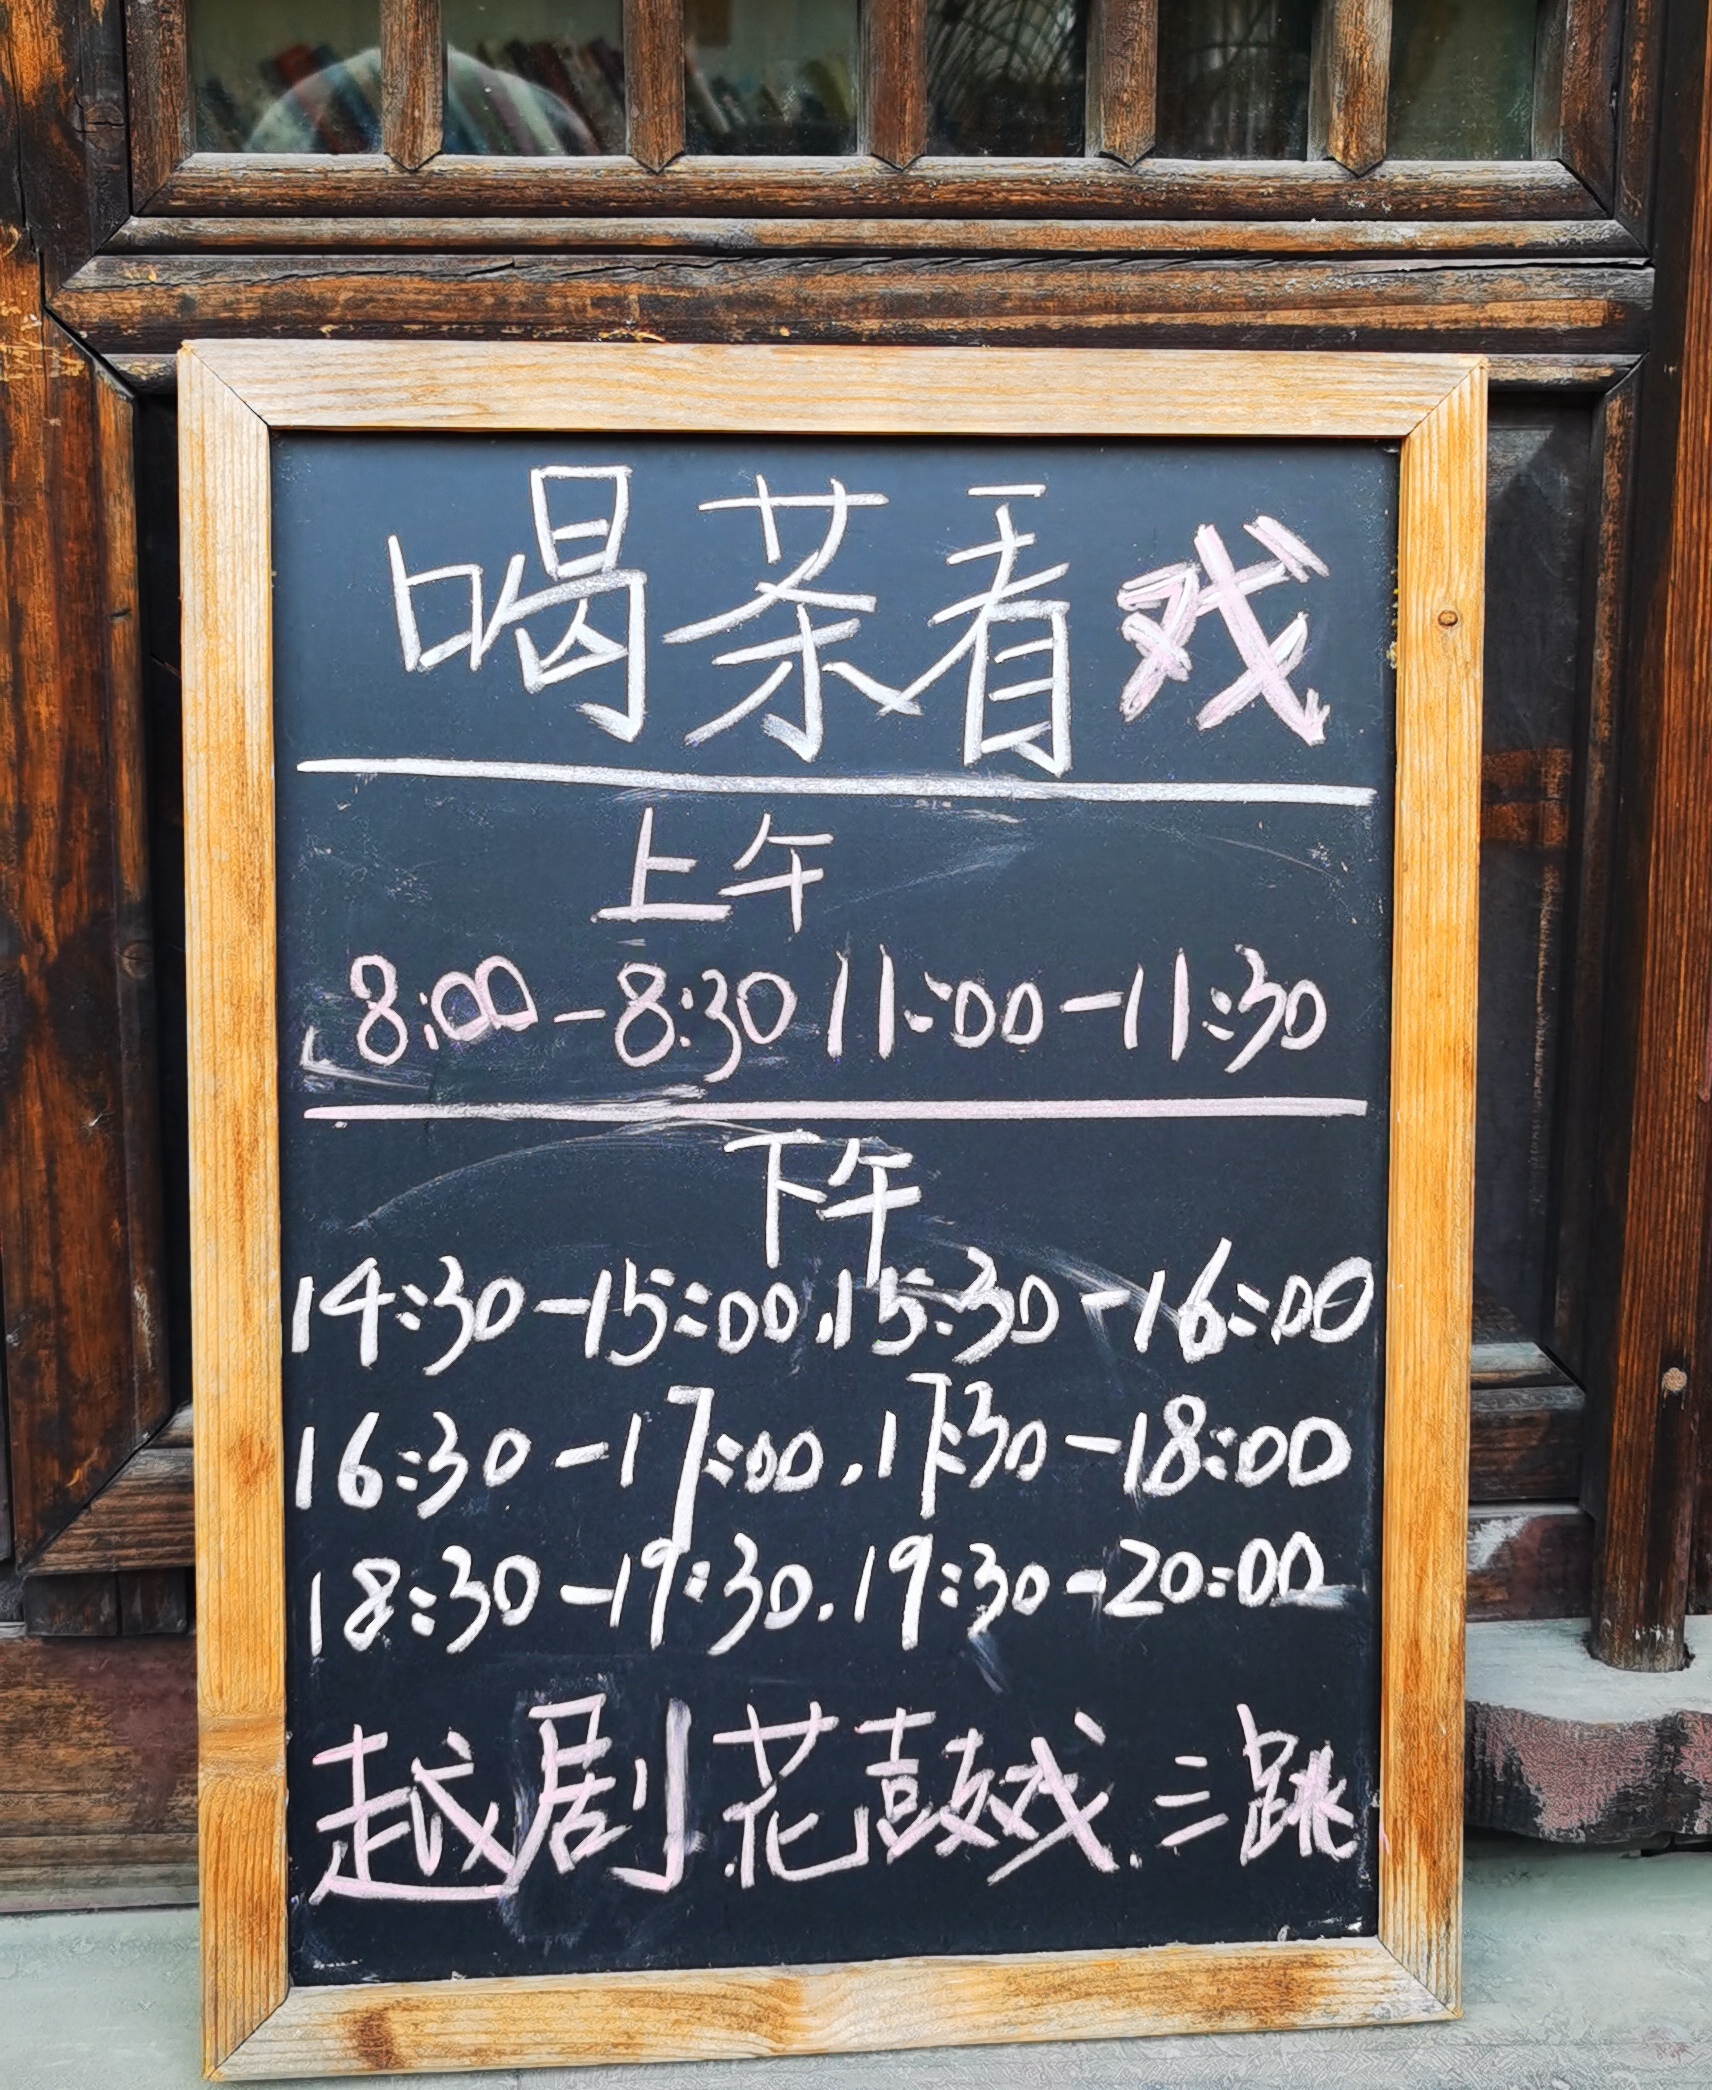 喝茶看戏
上午
8:00-8:30 11:00-11:30
下午
14:30-15:00.15:30-16:00
16:30-17:00.17:30-18:00
18:30-19:30.19:30-20:00
越剧.花鼓戏.三跳